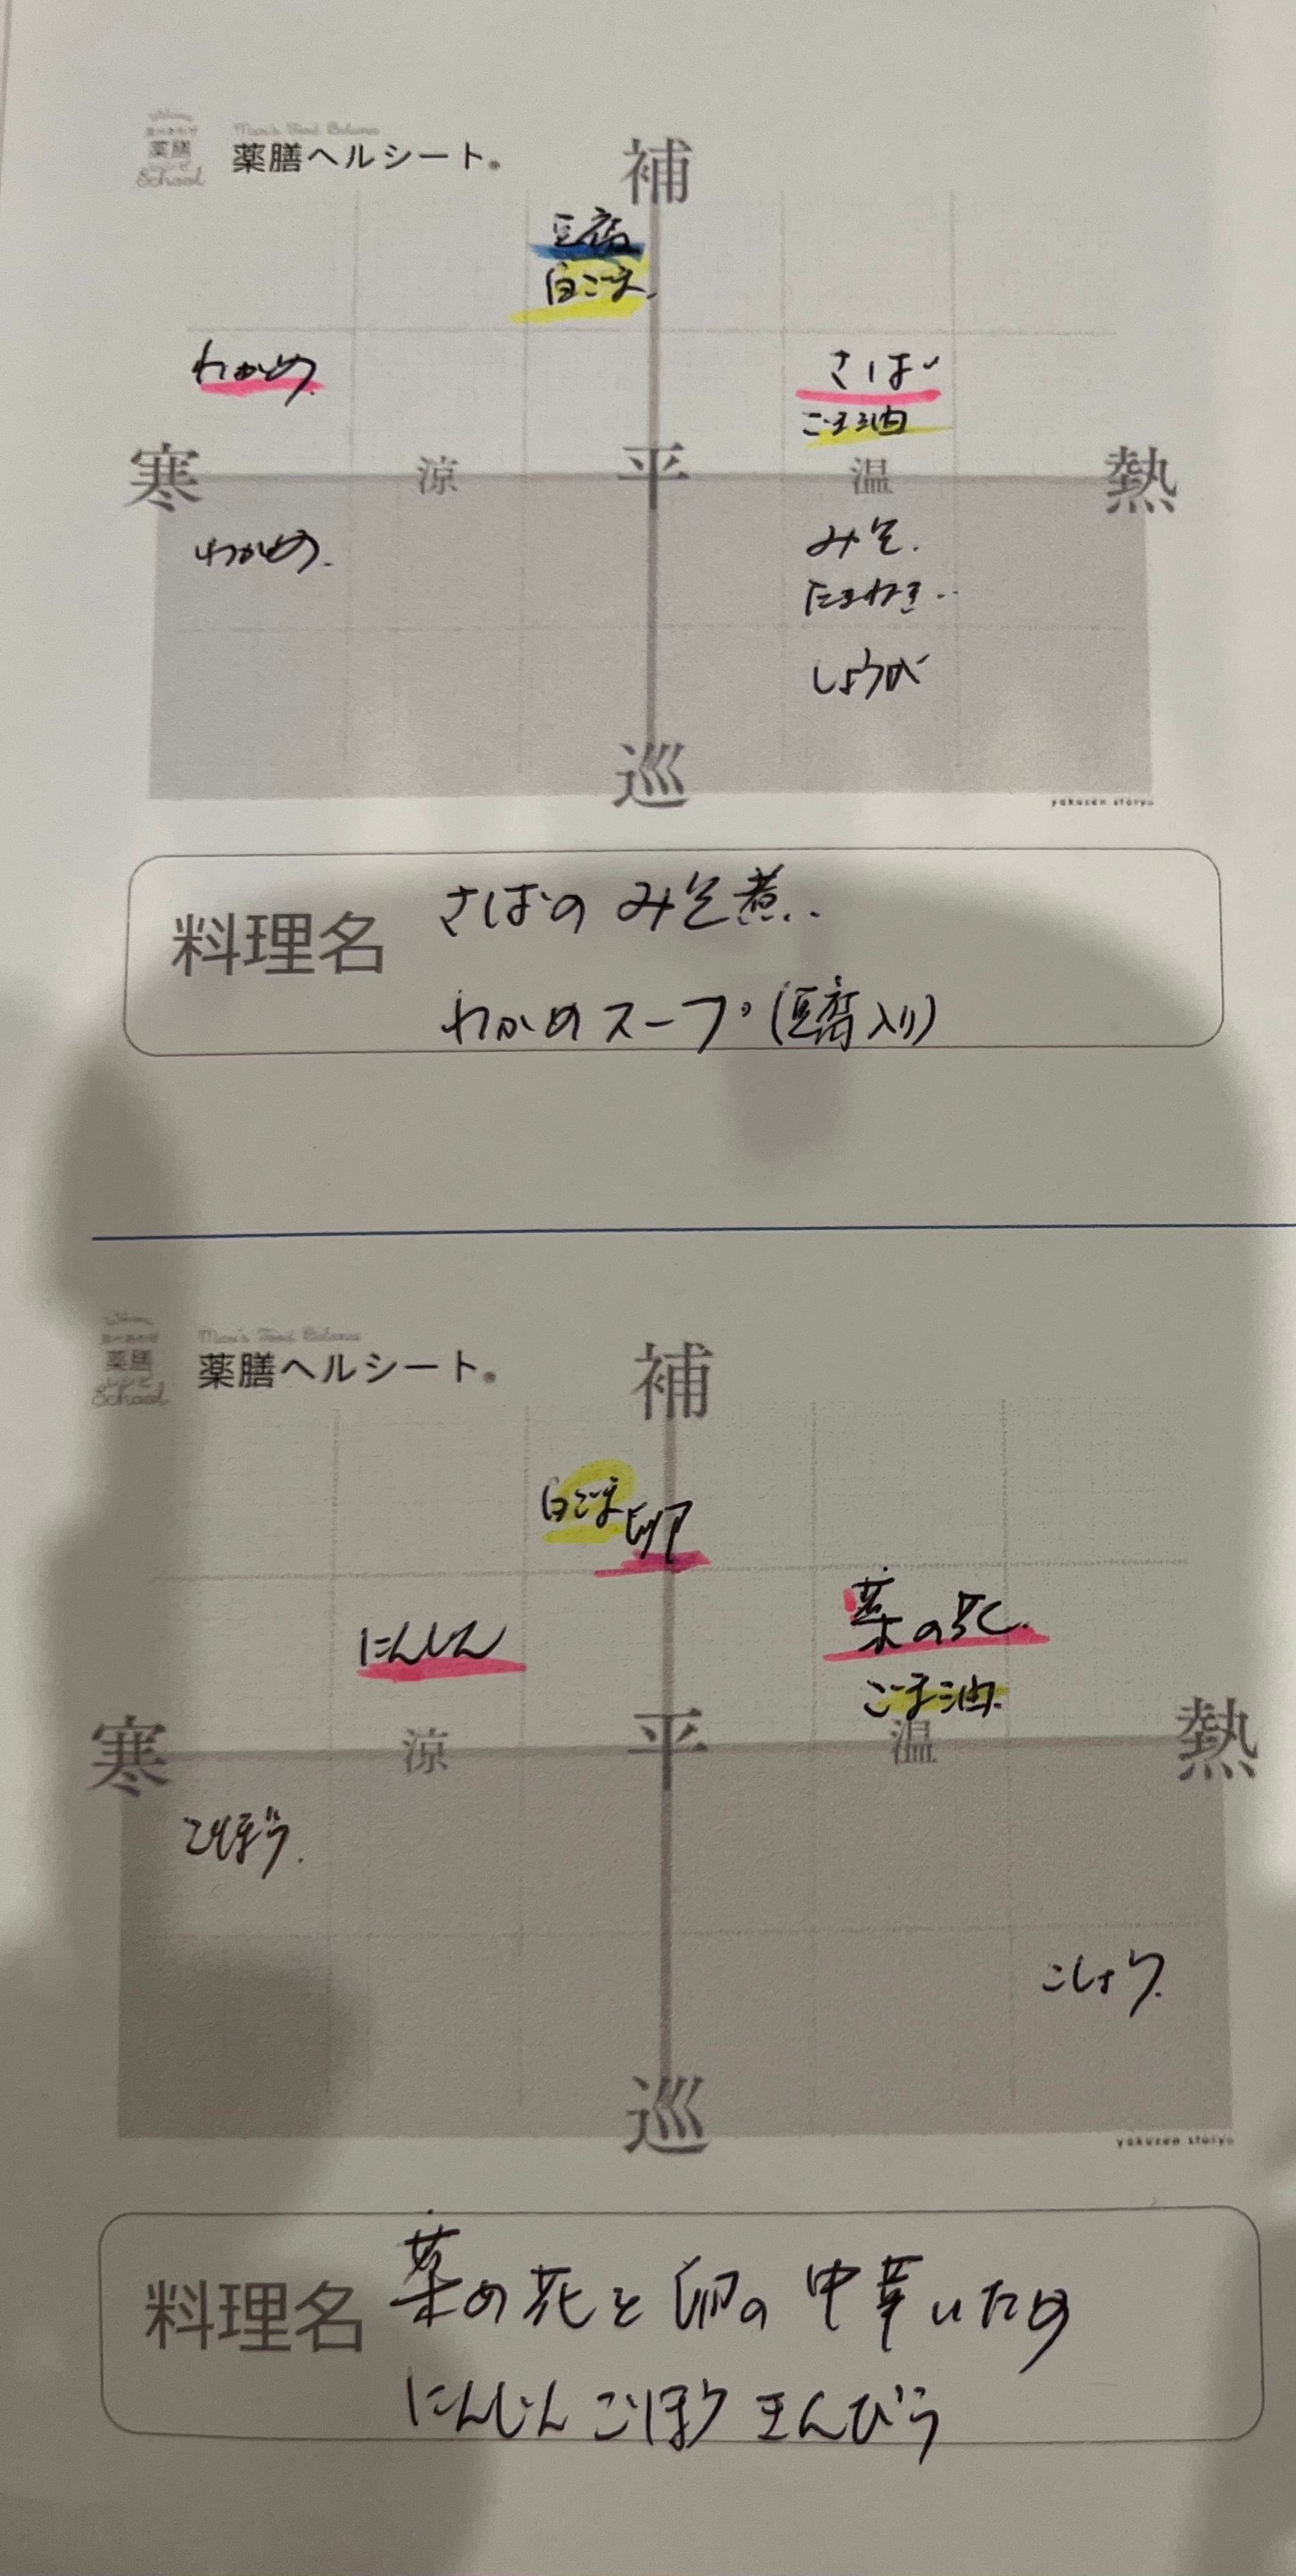 食べあわせ
薬膳
レシピ
School
Mari's Food Balance
薬膳ヘルシート®
補
豆腐
白ごま
わかめ
さば
ごま油
寒
涼
平
温
熱
わかめ
みそ
たまねぎ
しょうが
巡
yakuzen storyo
料理名
さばのみそ煮
わかめスープ(豆腐入り)
食べあわせ
薬膳
レシピ
School
Mari's Food Balance
薬膳ヘルシート®
補
白ごま 卵
にんじん
菜の花
ごま油
寒
涼
平
温
熱
ごぼう
こしょう
巡
yakuzen storyo
料理名
菜の花と卵の中華いため
にんじんごぼうきんぴら